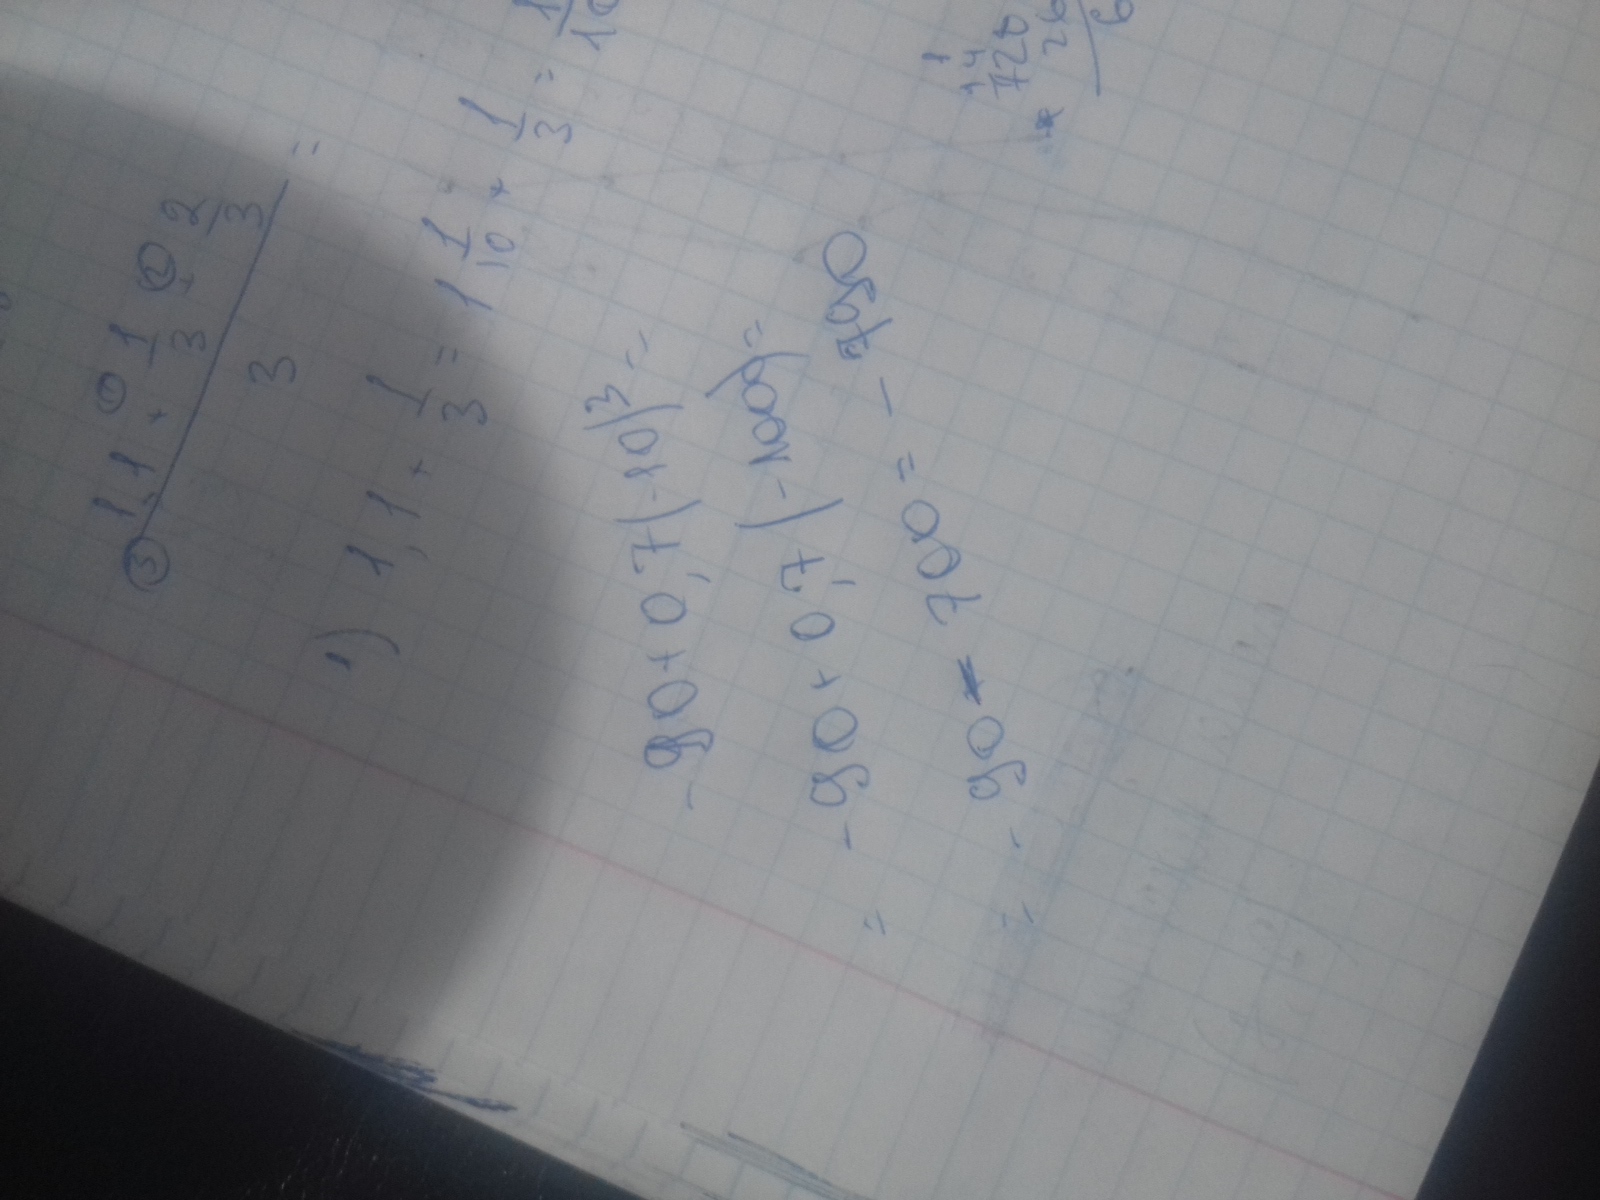 ③ 1,1 + ① 1/3 ② 2/3 =
3
1) 1,1 + 1/3 = 1 1/10 + 1/3 = 1
10
- 90 + 0,7(-10)3 =
= - 90 + 0,7 (-1000) =
= - 90 - 700 = - 790
1
14
728
26
6